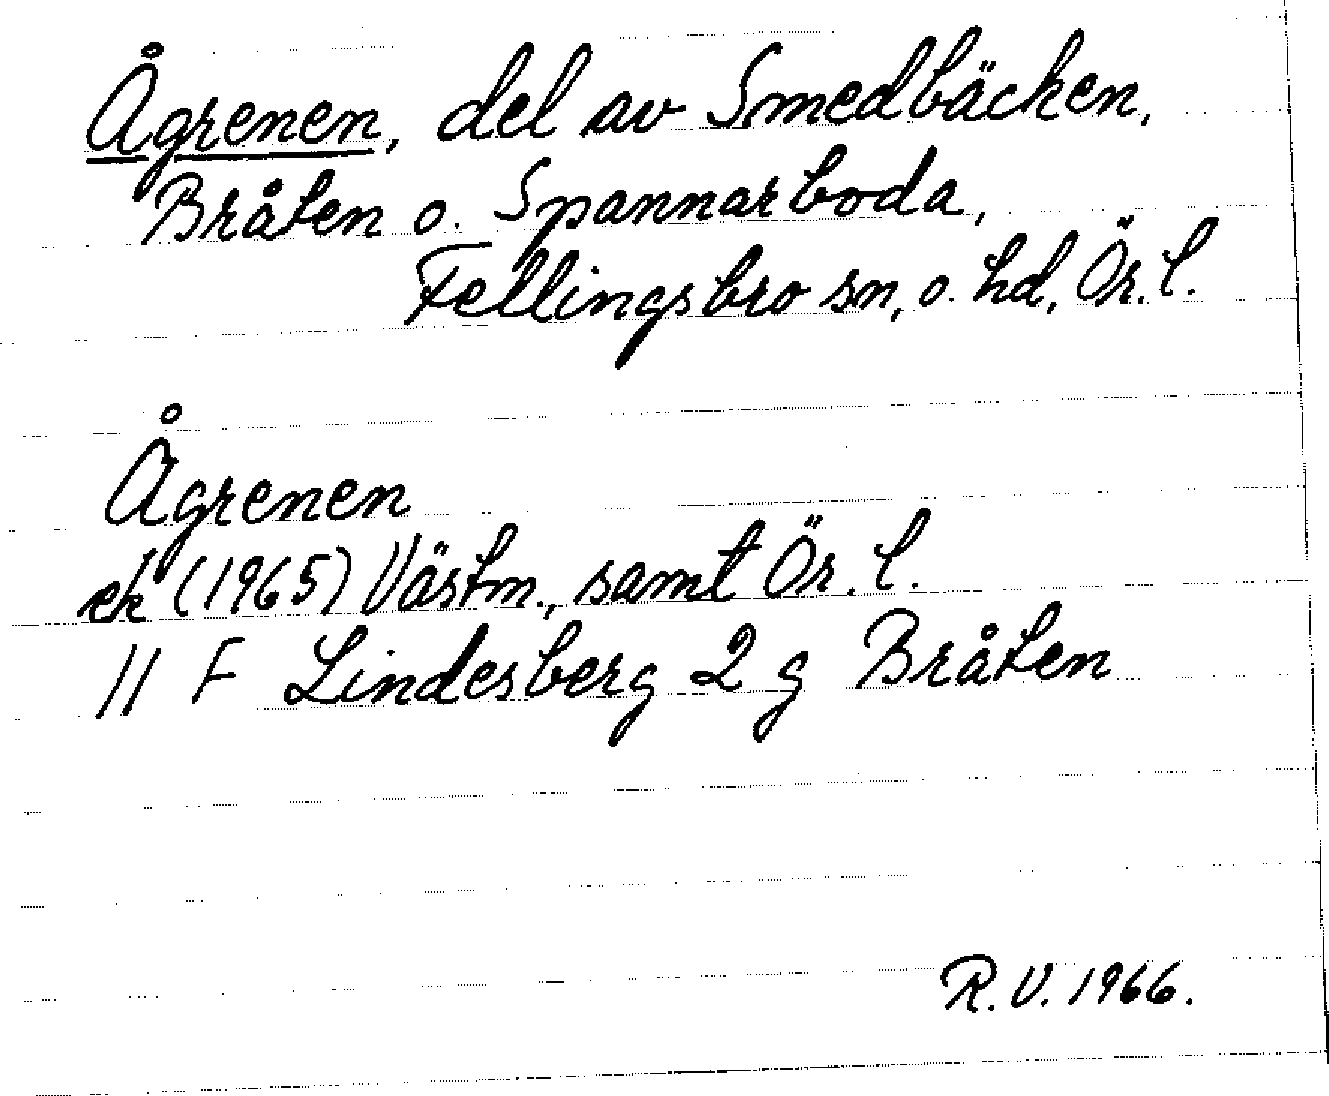 Ågrenen, del av Smedbäcken,
Bråten o. Spannarboda,
Fellingsbro sn, o. hd, Ör. l.
Ågrenen
ek (1965) Västm., samt Ör. l.
11 F Lindesberg 2 g Bråten
R. V. 1966.